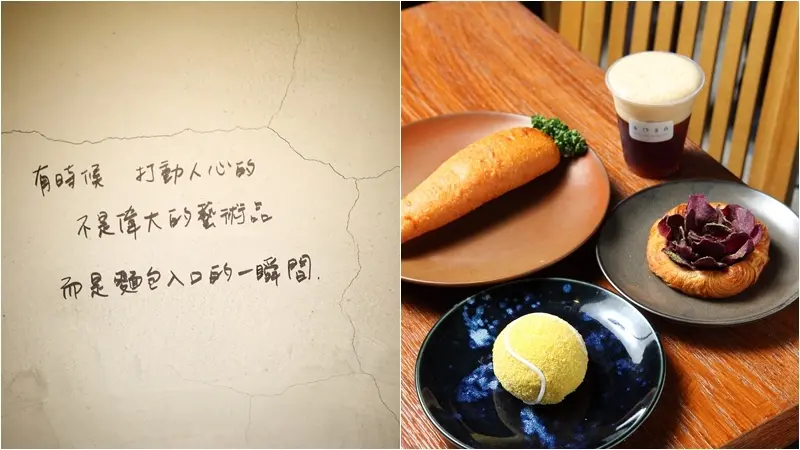 有時候 打動人心的
不是偉大的藝術品
而是麵包入口的一瞬間.